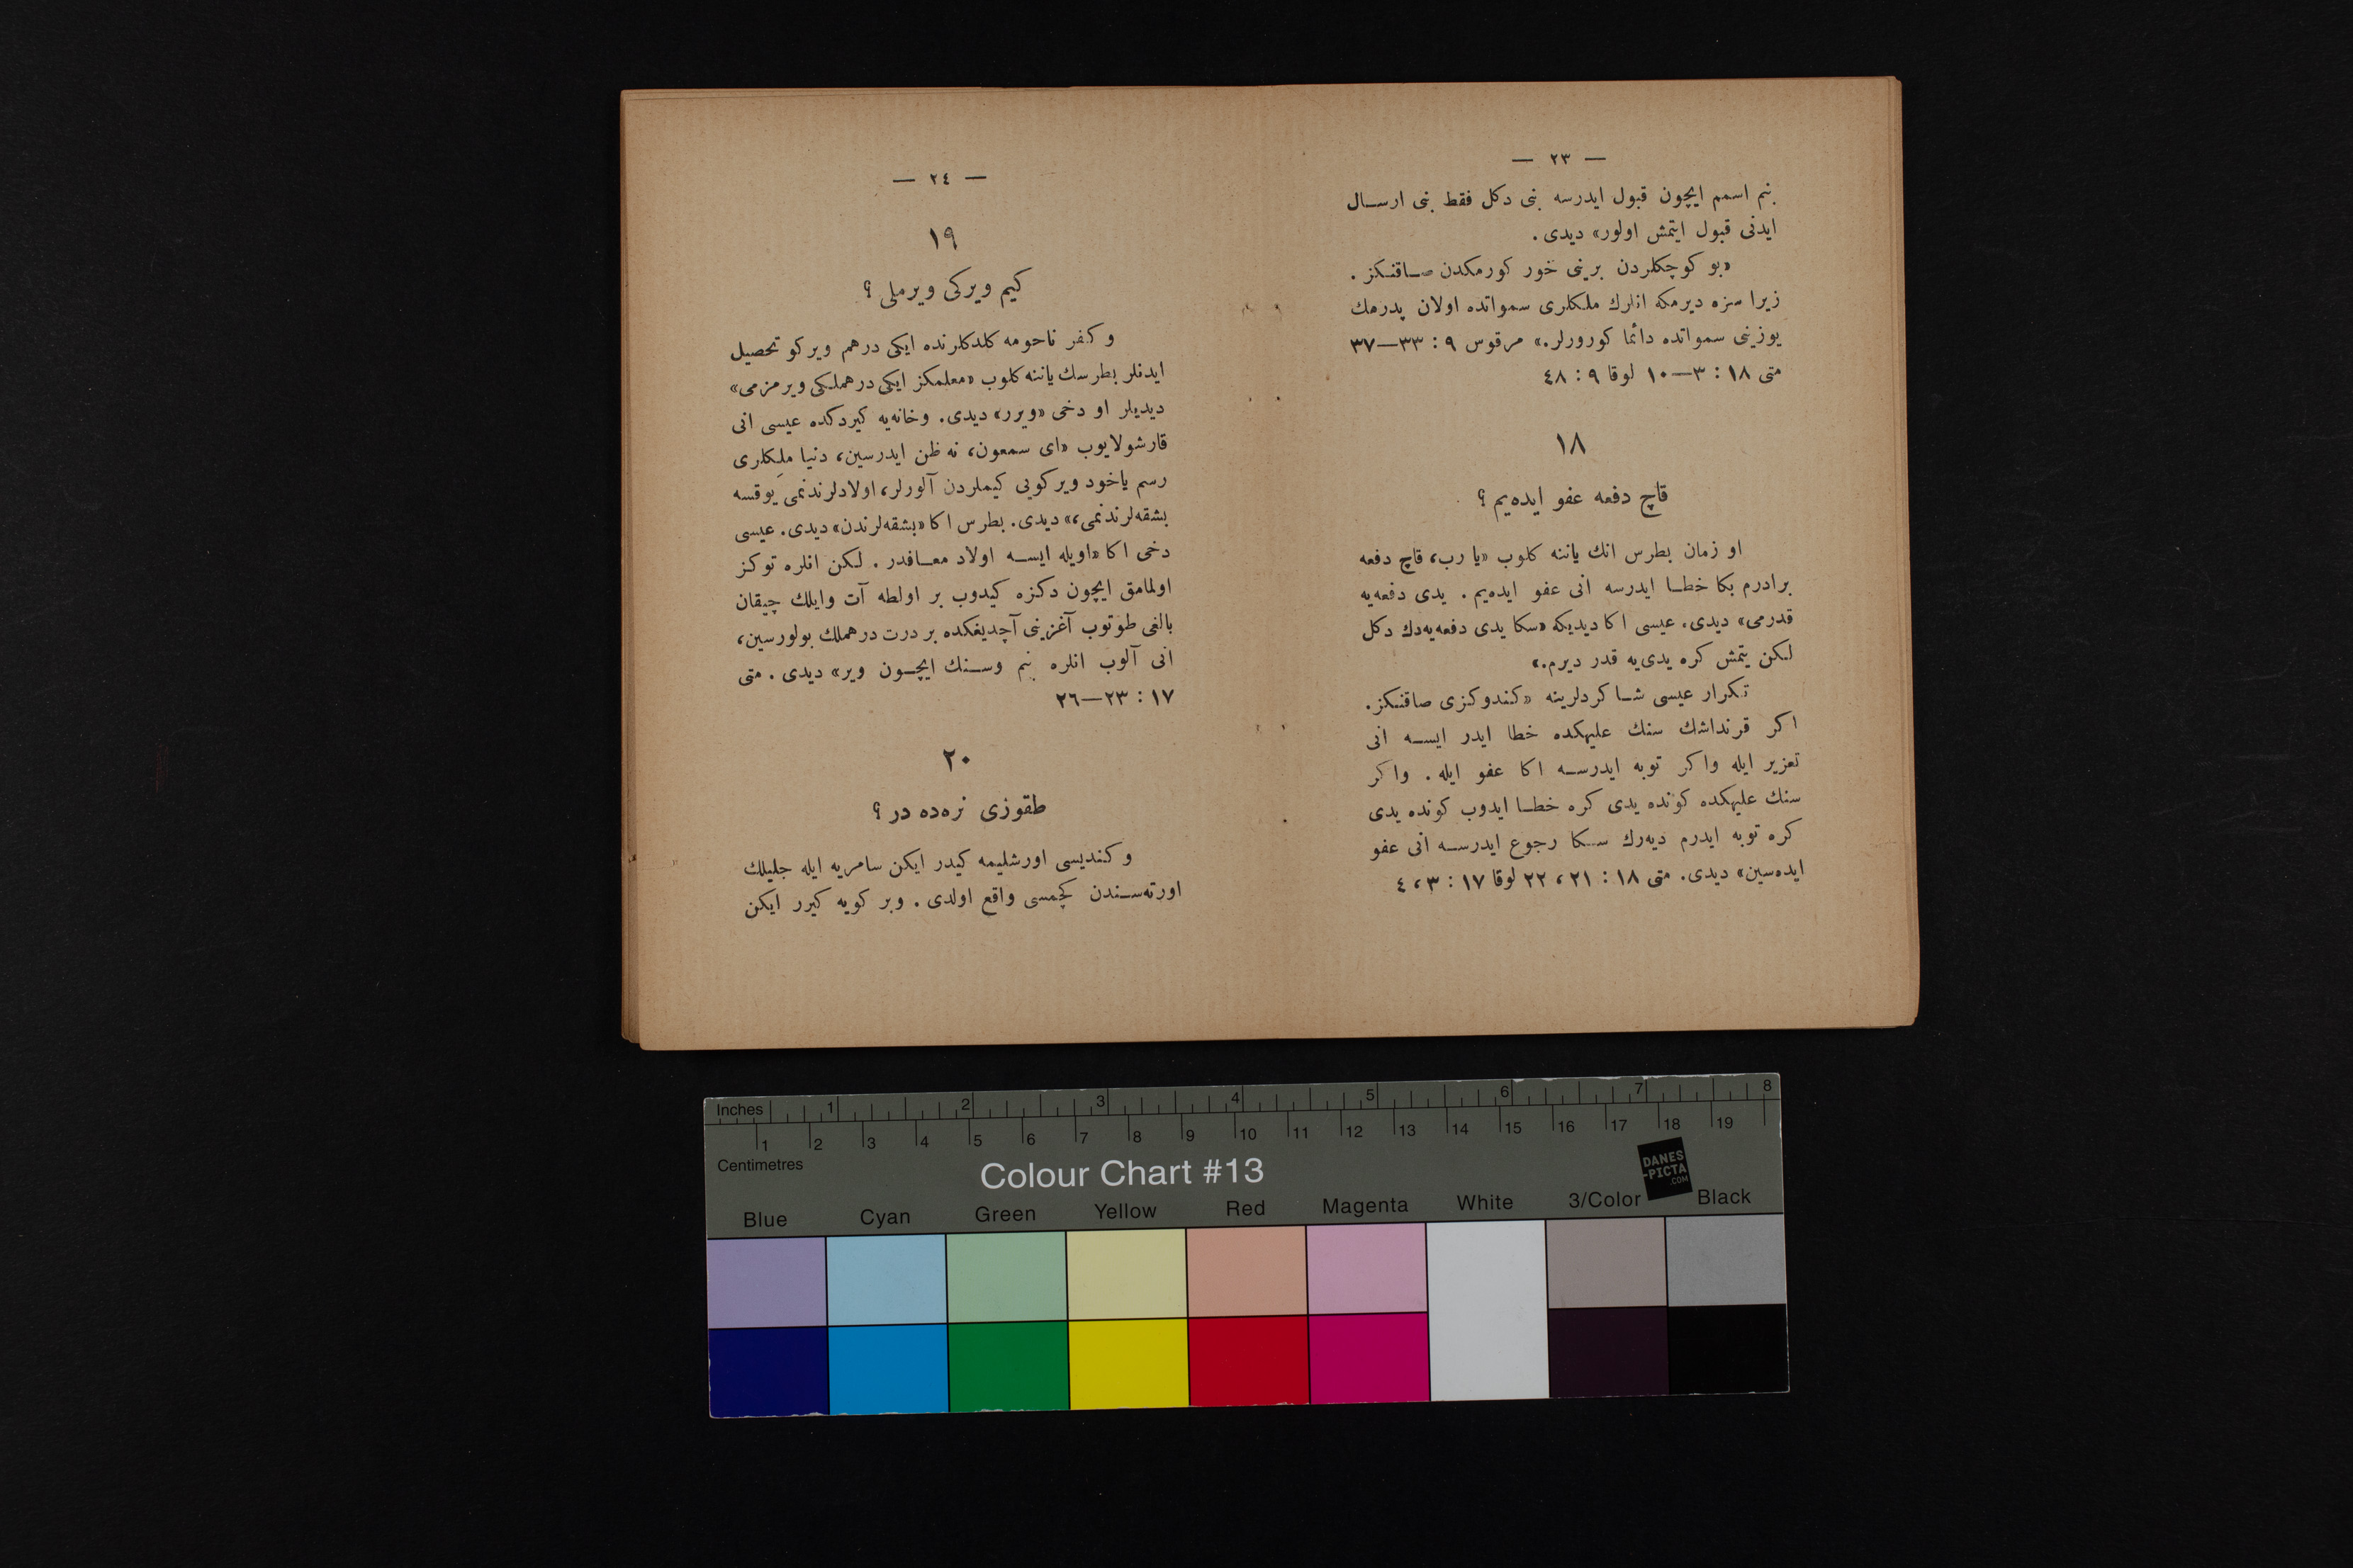 — ٢٣ —
بنم اسمم ايچون قبول ايدرسه بنى دكل فقط بنى ارسـال
ايدنى قبول ايتمش اولور» ديدى .
«بو كوچكلردن برينى خور كورمكدن صـاقنكز .
زيرا سزه ديرمكه انلرك ملكلرى سمواتده اولان پدرمك
يوزينى سمواتده دائما كورورلر.» مرقوس ٩ : ٣٣—٣٧
متى ١٨ : ٣—١٠ لوقا ٩ : ٤٨
١٨
قاچ دفعه عفو ايده‌يم ؟
او زمان بطرس انك ياننه كلوب «يا رب، قاچ دفعه
برادرم بكا خطـا ايدرسه انى عفو ايده‌يم . يدى دفعه‌يه
قدرمى» ديدى. عيسى اكا ديديكه «سكا يدى دفعه‌يه‌دك دكل
لكن يتمش كره يدى‌يه قدر ديرم.»
تكرار عيسى شـاكردلرينه «كندوكزى صاقنكز.
اكر قرنداشك سنك عليهكده خطا ايدر ايسـه انى
تعزير ايله واكر توبه ايدرسـه اكا عفو ايله . واكر
سنك عليهكده كونده يدى كره خطـا ايدوب كونده يدى
كره توبه ايدرم ديه‌رك سكا رجوع ايدرسـه انى عفو
ايده‌سين» ديدى. متى ١٨ : ٢١ ، ٢٢ لوقا ١٧ : ٣ ، ٤
— ٢٤ —
١٩
كيم ويركى ويرملى ؟
و كفر ناحومه كلدكلرنده ايكى درهم ويركو تحصيل
ايدنلر بطرسك ياننه كلوب «معلمكز ايكى درهملكى ويرمزمى»
ديديلر او دخى «ويرر» ديدى. وخانه‌يه كيردكده عيسى انى
قارشولايوب «اى سمعون، نه ظن ايدرسين، دنيا ملِكلرى
رسم ياخود ويركويى كيملردن آلورلر، اولادلرندنمى يوقسه
بشقه‌لرندنمى،» ديدى. بطرس اكا «بشقه‌لرندن» ديدى. عيسى
دخى اكا «اويله ايسـه اولاد معـافدر . لكن انلره توكز
اولمامق ايچون دكزه كيدوب بر اولطه آت وايلك چيقان
بالغى طوتوب آغزينى آچديغكده بر درت درهملك بولورسين،
انى آلوب انلره بنم وسـنك ايچـون وير» ديدى . متى
١٧ : ٢٣—٢٦
٢٠
طقوزى نره‌ده در ؟
و كنديسى اورشليمه كيدر ايكن سامريه ايله جليلك
اورته‌سـندن كچمسى واقع اولدى . وبر كويه كيرر ايكن
Inches 1 2 3 4 5 6 7 8
1 2 3 4 5 6 7 8 9 10 11 12 13 14 15 16 17 18 19
Centimetres
Colour Chart #13
DANES
-PICTA
.COM
Blue Cyan Green Yellow Red Magenta White 3/Color Black